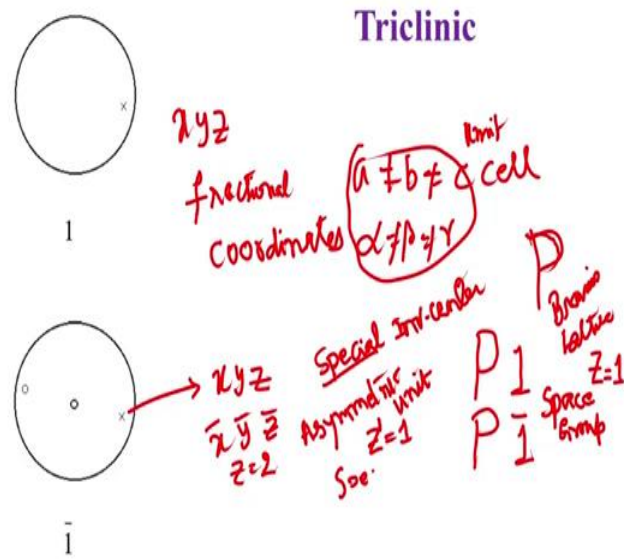 Triclinic
x y z
fractional
coordinates
a ≠ b ≠ c
α ≠ β ≠ γ
Unit
cell
1
P
Bravais
lattice
Z=1
x y z
x̄ ȳ z̄
Z=2
Special Inv-center
Asymmetric
unit
Z'=1
P1
P1̄
Space
Group
1̄